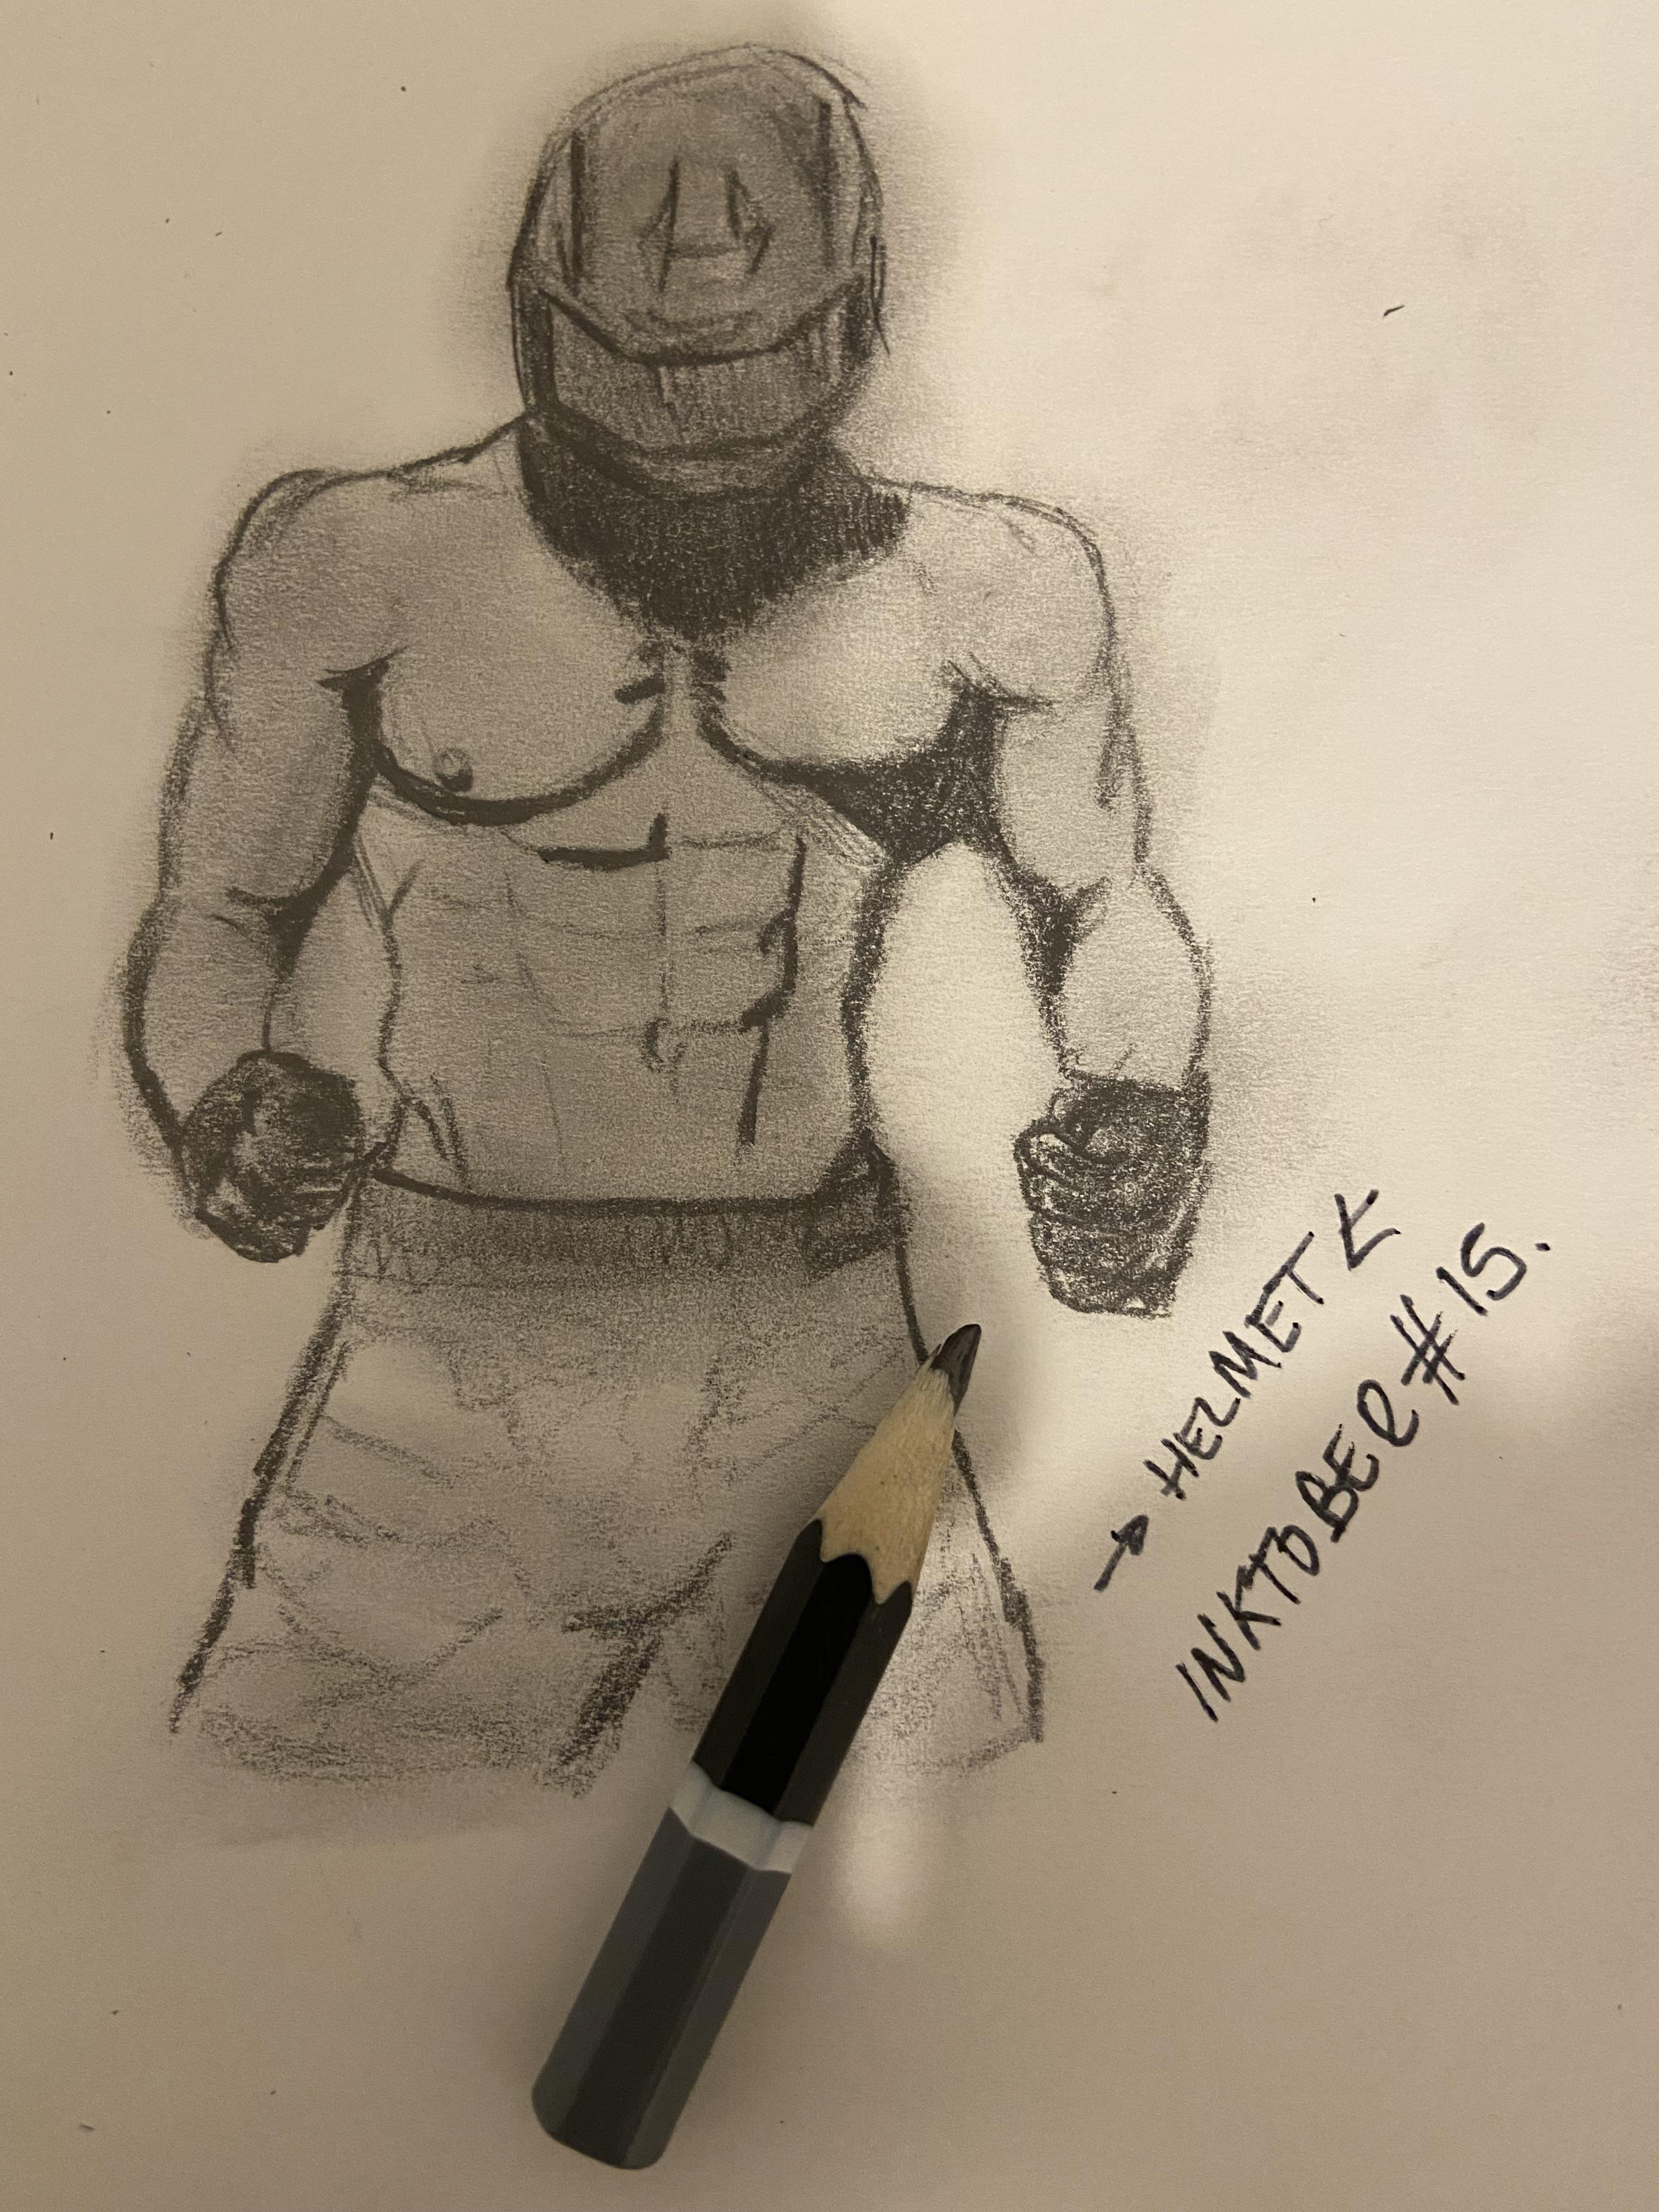 → HELMET <
INKTOBER #15.